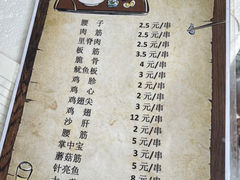 腰子 2.5 元/串
肉筋 2.5 元/串
里脊肉 2.5 元/串
板筋 3.5 元/串
脆骨 4 元/串
鱿鱼板 3 元/串
鸡胗 2 元/串
鸡心 2 元/串
鸡翅尖 3 元/串
鸡翅 12 元/串
沙肝 2 元/串
腰筋 5 元/串
掌中宝 3 元/串
蘑菇筋 元/串
针亮鱼 8 元/串